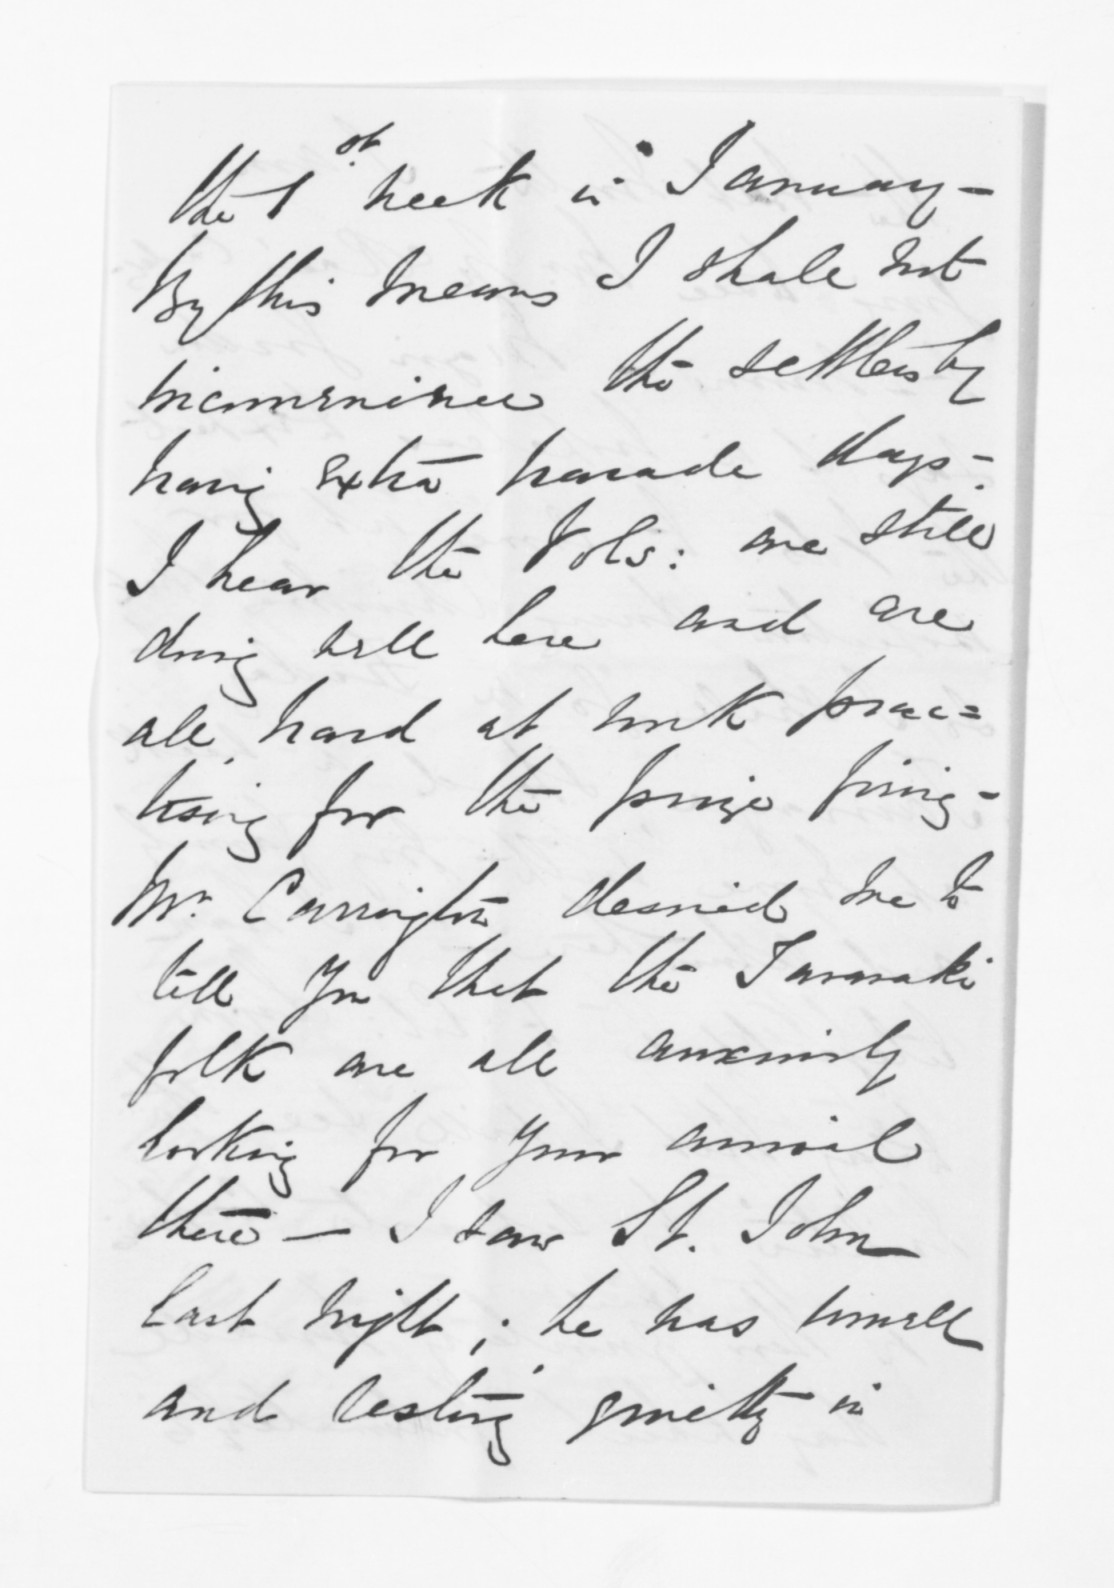 the 1st week in January -
By this means I shall not
inconvenience the settlers by
having extra parade days -
I hear the Vols: are still
doing well here and are
all hard at work prac=
tising for the prize firing -
Mr. Carrington desired me to
tell you that the Taranaki
folk are all anxiously
looking for your arrival
there - I saw St. John
last night; he was unwell
and resting quietly in